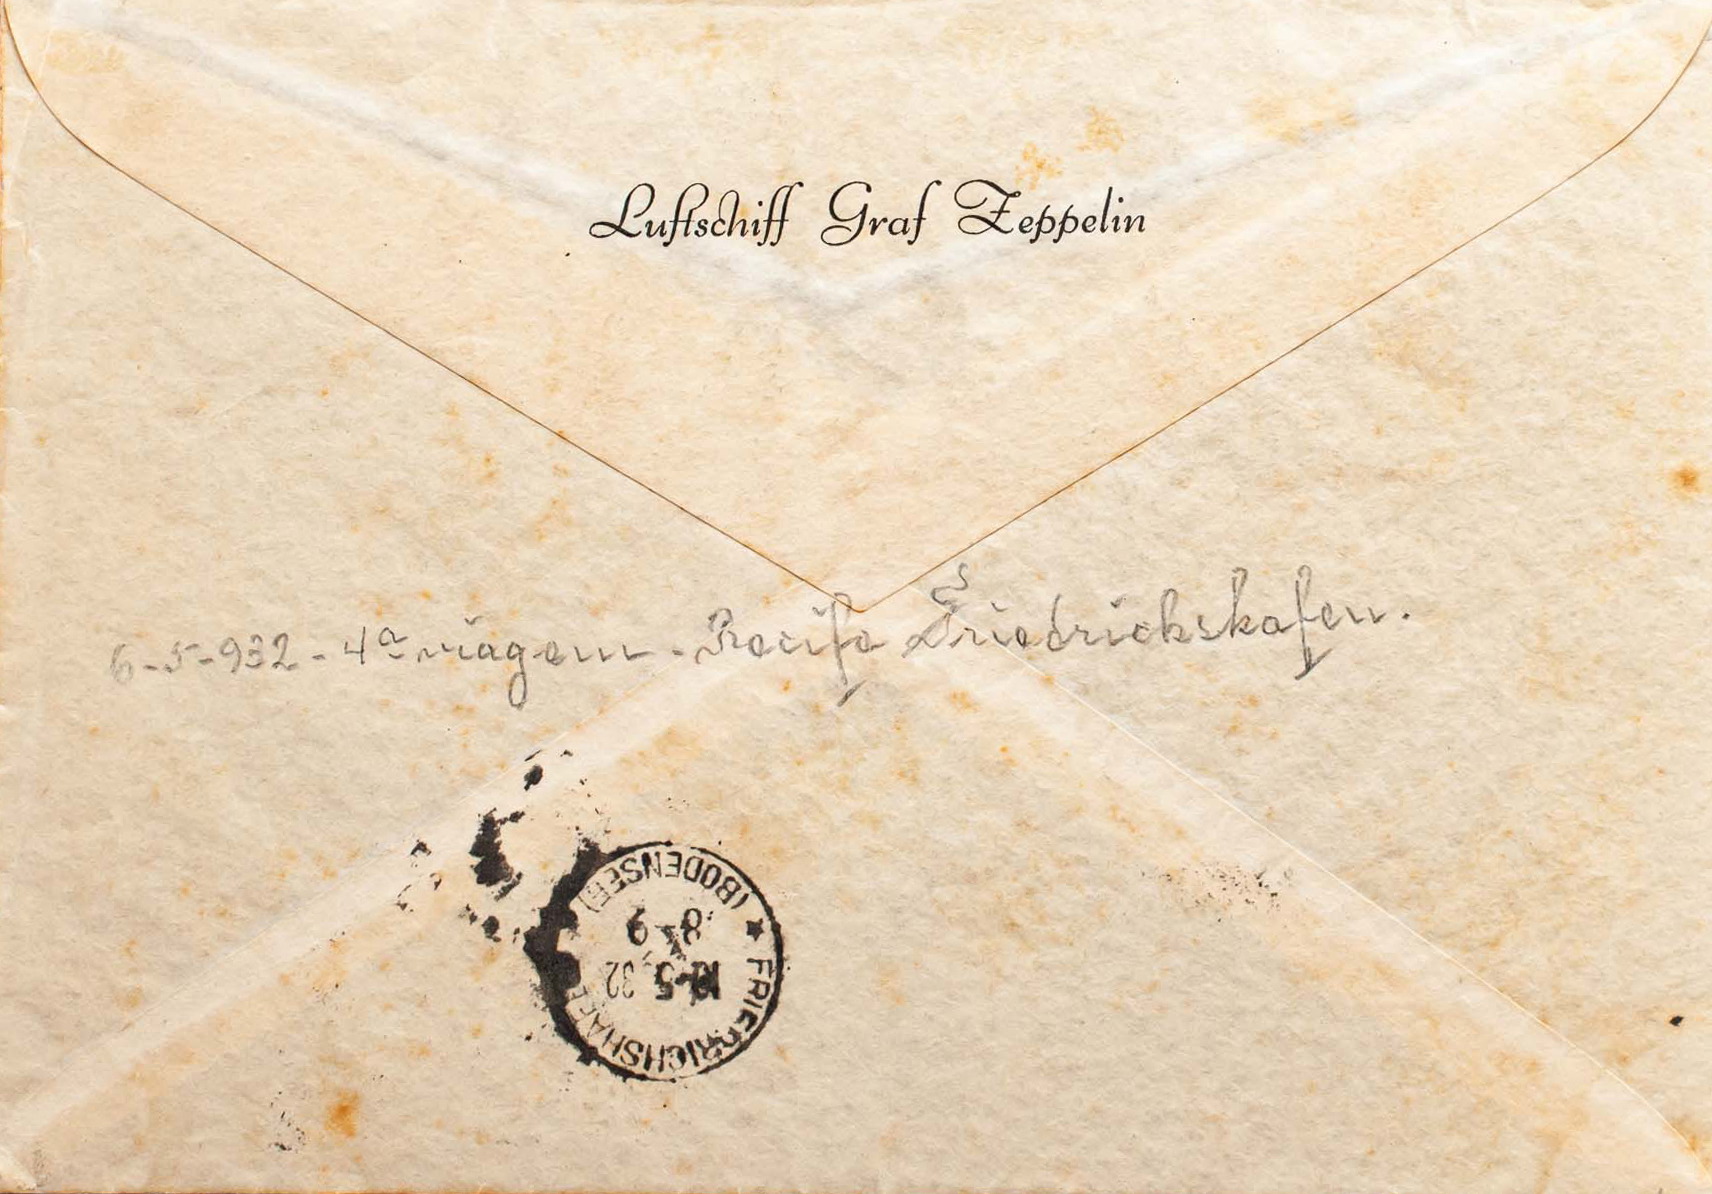 Luftschiff Graf Zeppelin
6-5-932 - 4ª viagem - Recife Friedrichskafen.
FRIEDRICHSHAFEN
12.5.32
8-9
(BODENSEE)